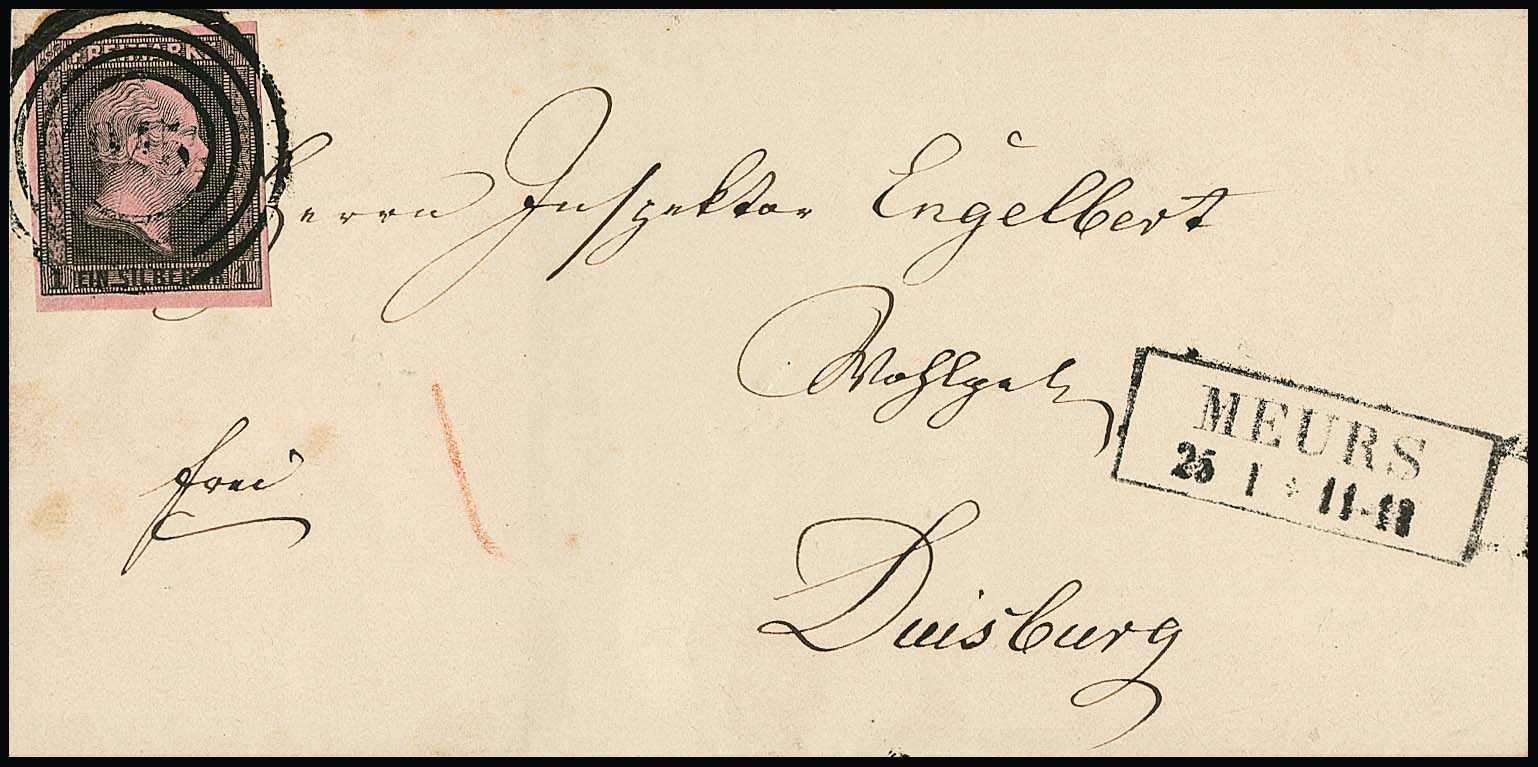 FREIMARKE
1 EIN SILBERGR. 1
Herrn Inspektor Engelbert
Wohlgeb
MEURS
25 1 * 11-
frei
Duisburg